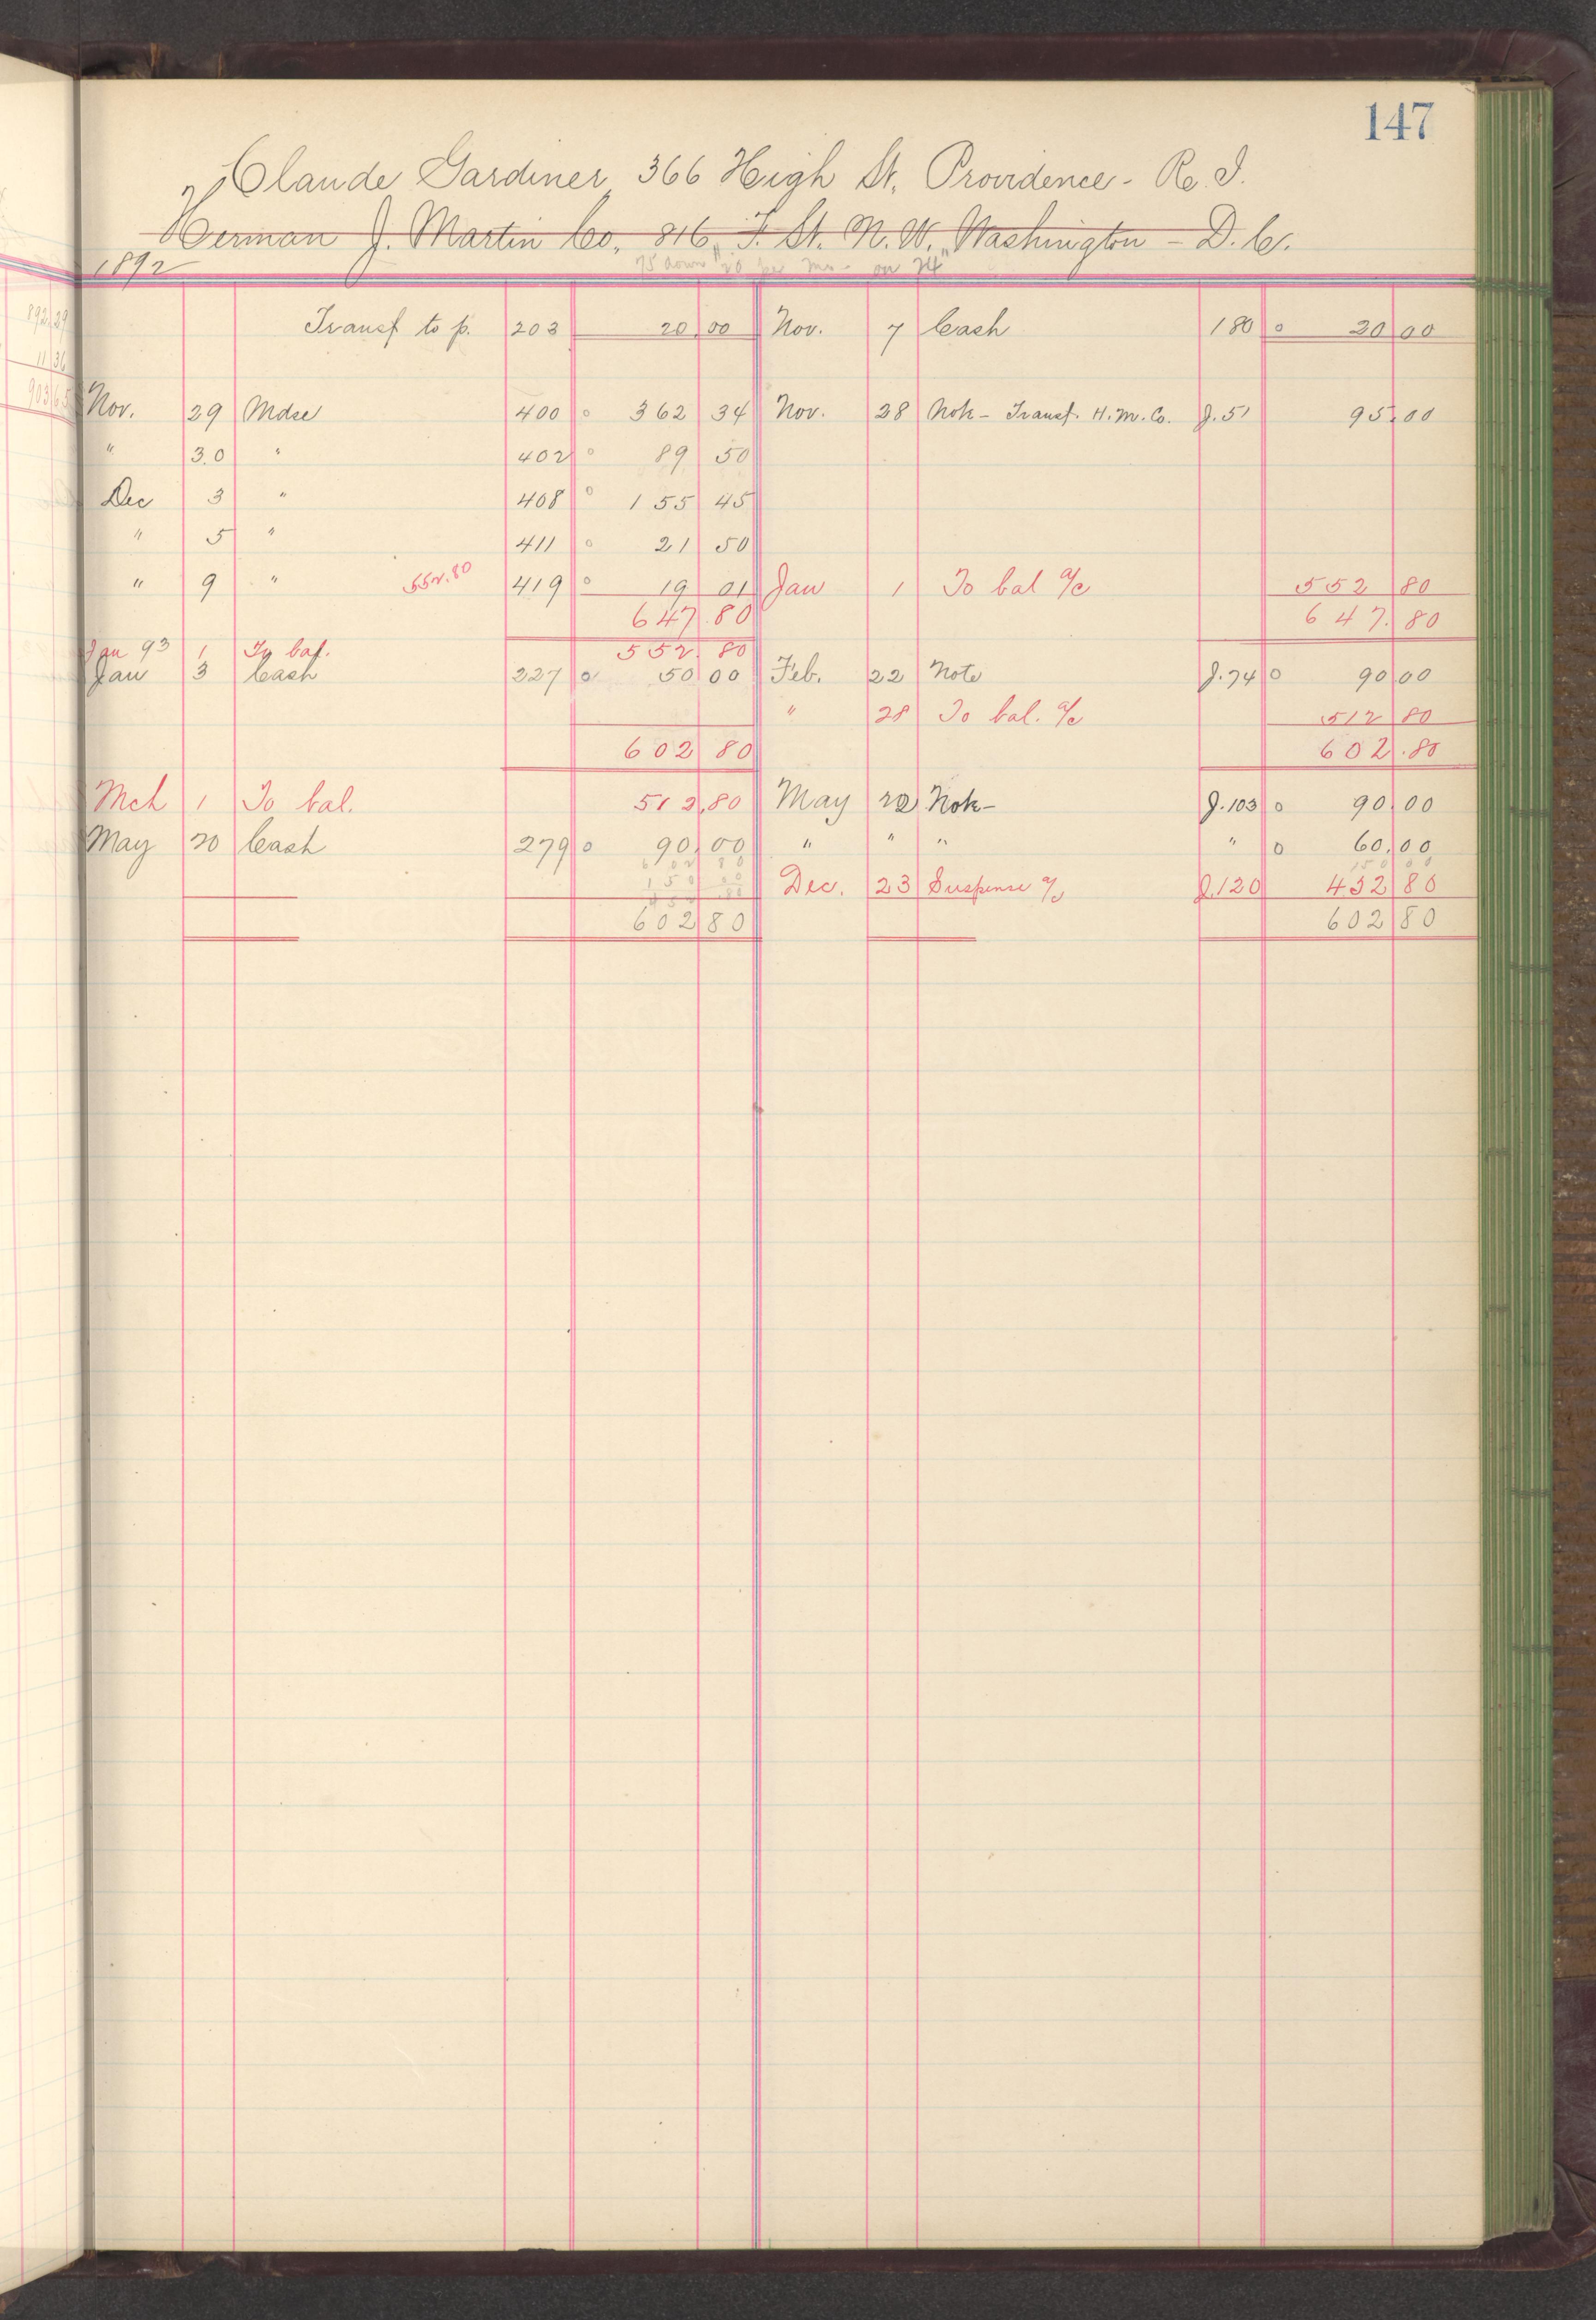 147
Claude Gardiner, 366 High St, Providence - R. I.
Herman J. Martin Co, 816 F. St. N. W. Washington - D. C.
1892 75 down on
892 29
Transf to p. 203 20 00 Nov. 7 Cash 180 o 20 00
11 36
903 65
Nov. 29 Mdse 400 o 362 34 Nov. 28 Note - Transf. H. M. Co. J. 51 95.00
" 30 " 402 o 89 50
Dec 3 " 408 o 155 45
" 5 " 411 o 21 50
" 9 " 552.80 419 o 19 01 Jan 1 To bal a/c 552 80
647.80 647.80
Jan 93 1 To bal. 552.80
Jan 3 Cash 227 o 50 00 Feb. 22 Note J. 74 o 90 00
" 28 To bal. a/c 512 80
602 80 602.80
Mch 1 To bal. 512.80 May 22 Note J. 103 o 90.00
May 20 Cash 279 o 90.00 " " " " o 60.00
602 80 150 00
150 00 Dec. 23 Suspense a/c J. 120 452 80
452 .80
602 80 602 80